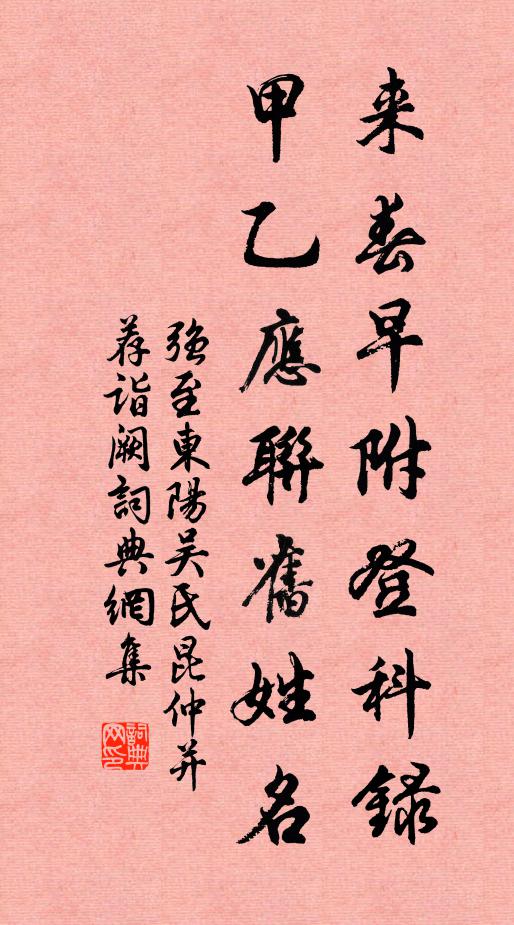 来春早附登科錄
甲乙應聯舊姓名
强至東陽吴氏昆仲并
荐詣阙詞典網集
詞典网印